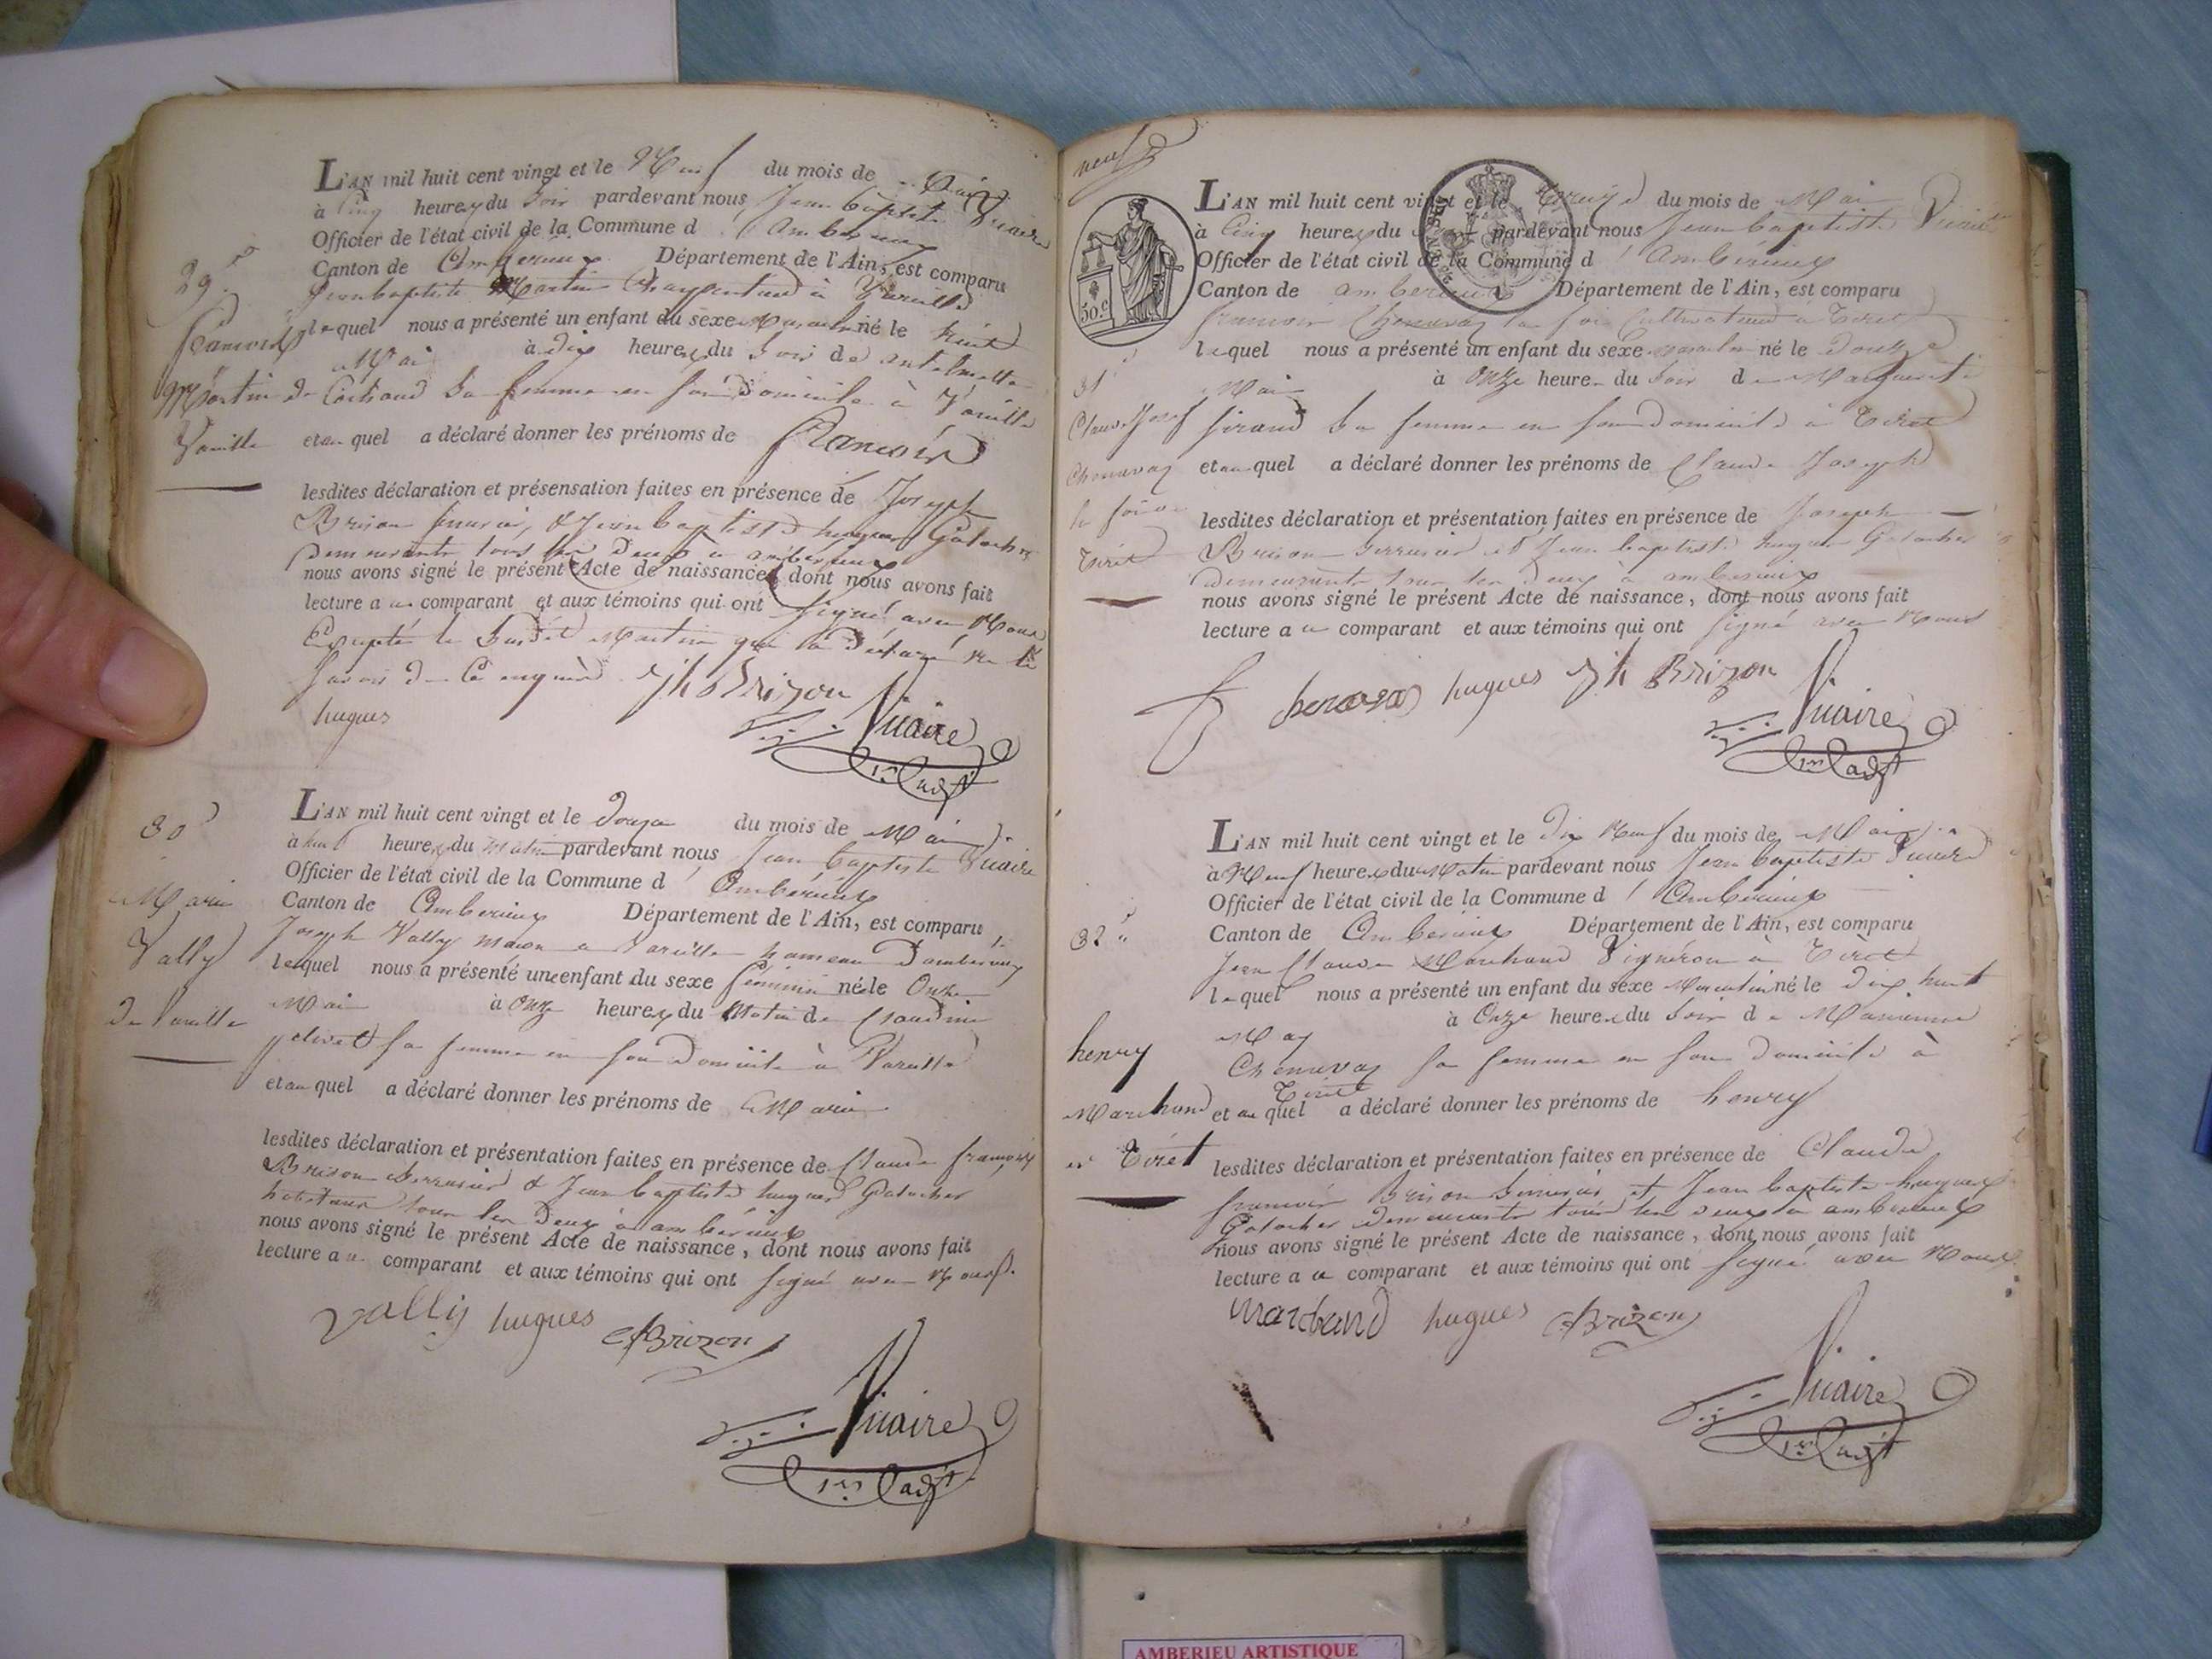 29.e
François
Martin de
Vareille
L'AN mil huit cent vingt et le Neuf du mois de Mai
à Cinq heures du Soir pardevant nous Jean baptiste Vicaire
Officier de l'état civil de la Commune d'Amberieux
Canton de Amberieux Département de l'Ain, est comparu
Jeanbaptiste Martin Charpentier à Vareille
lequel nous a présenté un enfant du sexe masculin né le huit
Mai à dix heures du Soir de antelmette
sa femme en son domicile à Vareille
et au quel a déclaré donner les prénoms de François
lesdites déclaration et présensation faites en présence de Joseph
Brison serrurier, & Jean baptiste hugues Galocher
demeurants tous les deux à amberieux
nous avons signé le présent Acte de naissance, dont nous avons fait
lecture a u comparant et aux témoins qui ont signé avec Nous
Excepté le Susdit Martin qui a déclaré ne le
savoir de ce enquis jh Brizon
hugues
Vicaire
1er adjt
30
Marie
Vally
de Vareille
L'AN mil huit cent vingt et le douze du mois de Mai
à huit heures du Matin pardevant nous Jean baptiste Vicaire
Officier de l'état civil de la Commune d'Ambérieux
Canton de Amberieux Département de l'Ain, est comparu
Joseph Vally maçon a Vareille hameau d'amberieux
lequel nous a présenté une enfant du sexe féminin né le Onze
Mai à Onze heures du Matin de Claudine
sa femme en son domicile à Vareille
et au quel a déclaré donner les prénoms de Marie
lesdites déclaration et présentation faites en présence de Claude françois
Brison Serrurier & Jean baptiste hugues Galocher
habitans tous les deux à amberieux
nous avons signé le présent Acte de naissance, dont nous avons fait
lecture a u comparant et aux témoins qui ont signé avec Nous.
vally hugues Brizon
Vicaire
1er adjt
neuf
50 c
31
Claude Josef
Chenavaz
la foi a
Tiret
L'AN mil huit cent vingt et le treize du mois de Mai
à Cinq heures du pardevant nous Jean baptiste Vicaire
Officier de l'état civil de la Commune d'Ambérieux
Canton de amberieux Département de l'Ain, est comparu
françois Chenavaz la foi Cultivateur à Tiret
lequel nous a présenté un enfant du sexe masculin né le douze
Mai à Onze heures du Soir de Marguerite
sirand Sa femme en son domicile à Tiret
et au quel a déclaré donner les prénoms de Claude Joseph
lesdites déclaration et présentation faites en présence de Joseph
Brison serrurier et Jean baptiste hugues Galocher
demeurants tous les deux à amberieux
nous avons signé le présent Acte de naissance, dont nous avons fait
lecture a u comparant et aux témoins qui ont signé avec Nous
f chenavaz hugues jh Brizon
Vicaire
1er adjt
32.e
henry
Marchand
Tiret
L'AN mil huit cent vingt et le dix Neuf du mois de Mai
à Neuf heures du Matin pardevant nous Jean baptiste Vicaire
Officier de l'état civil de la Commune d'Ambérieux
Canton de Ambérieux Département de l'Ain, est comparu
Jean Claude Marchand Vigneron à Tiret
lequel nous a présenté un enfant du sexe Masculin né le dix huit
May à Onze heures du Soir de Marianne
Chenavaz sa femme en son domicile à
Tiret
et au quel a déclaré donner les prénoms de henry
lesdites déclaration et présentation faites en présence de Claude
françois Brison Serrurier et Jean baptiste hugues
Galocher demeurants tous les deux à amberieux
nous avons signé le présent Acte de naissance, dont nous avons fait
lecture a u comparant et aux témoins qui ont signé avec Nous
marchand hugues Brizon
Vicaire
1er adjt
AMBERIEU ARTISTIQUE